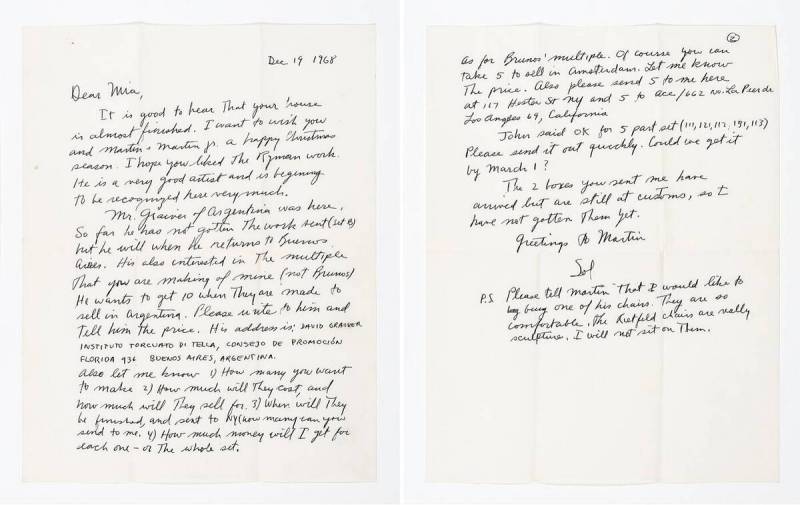 Dec 19 1968
Dear Mia,
It is good to hear That your house
is almost finished. I want to wish you
and Martin & Martin jr. a happy Christmas
season. I hope you liked The Ryman work.
He is a very good artist and is begining
To be recognized here very much.
Mr. Graiver of Argentina was here.
So far he has not gotten The work sent (set B)
but he will when he returns to Buenos
Aires. His also interested in The multiple
That you are making of mine (not Brunos)
He wants to get 10 when They are made to
sell in Argentina. Please write to him and
Tell him the price. His address is: DAVID GRAIVER
INSTITUTO TORCUATO DI TELLA, CONSEJO DE PROMOCIÓN
FLORIDA 936 BUENOS AIRES, ARGENTINA.
Also let me know 1) How many you want
to make 2) How much will They cost, and
how much will They sell for. 3) When will They
be finished, and sent to NY (how many can you
send to me. 4) How much money will I get for
each one - or The whole set.
2
as for Brunos' multiple. Of course you can
take 5 to sell in Amsterdam. Let me know
The price. Also please send 5 to me here
at 117 Hester St NY and 5 to Ace/662 No. La Peer dr
Los Angeles 69, California
John said OK for 5 part set (111, 121, 112, 191, 113)
Please send it out quickly. Could we get it
by March 1?
The 2 boxes you sent me have
arrived but are still at customs, so I
have not gotten Them yet.
Greetings to Martin
Sol
P.S. Please tell Martin That I would like to
buy one of his chairs. They are so
comfortable. The Rietfeld chairs are really
sculpture. I will not sit on Them.